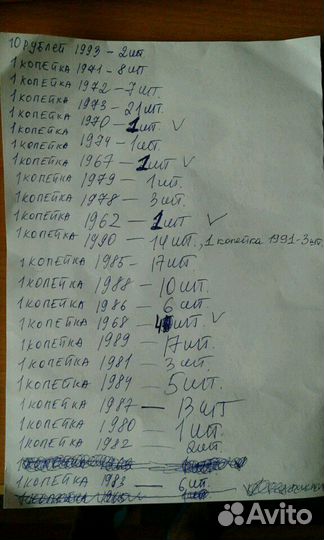 10 рублей 1993 - 2 шт.
1 копейка 1971 - 8 шт
1 копейка 1972 - 7 шт.
1 копейка 1973 - 21 шт.
1 копейка 1970 - 1 шт. V
1 копейка 1974 - 1 шт.
1 копейка 1967 - 1 шт V
1 копейка 1979 - 1 шт.
1 копейка 1978 - 3 шт.
1 копейка 1962 - 1 шт V
1 копейка 1990 - 14 шт., 1 копейка 1991 - 3 шт.
1 копейка 1985 - 17 шт
1 копейка 1988 - 10 шт.
1 копейка 1986 - 6 шт
1 копейка 1968 - 4 шт. V
1 копейка 1989 - 17 шт.
1 копейка 1981 - 3 шт.
1 копейка 1984 - 5 шт.
1 копейка 1987 - 13 шт
1 копейка 1980 - 1 шт.
1 копейка 1982 - 2 шт
1 копейка 1983 - 6 шт.
Avito